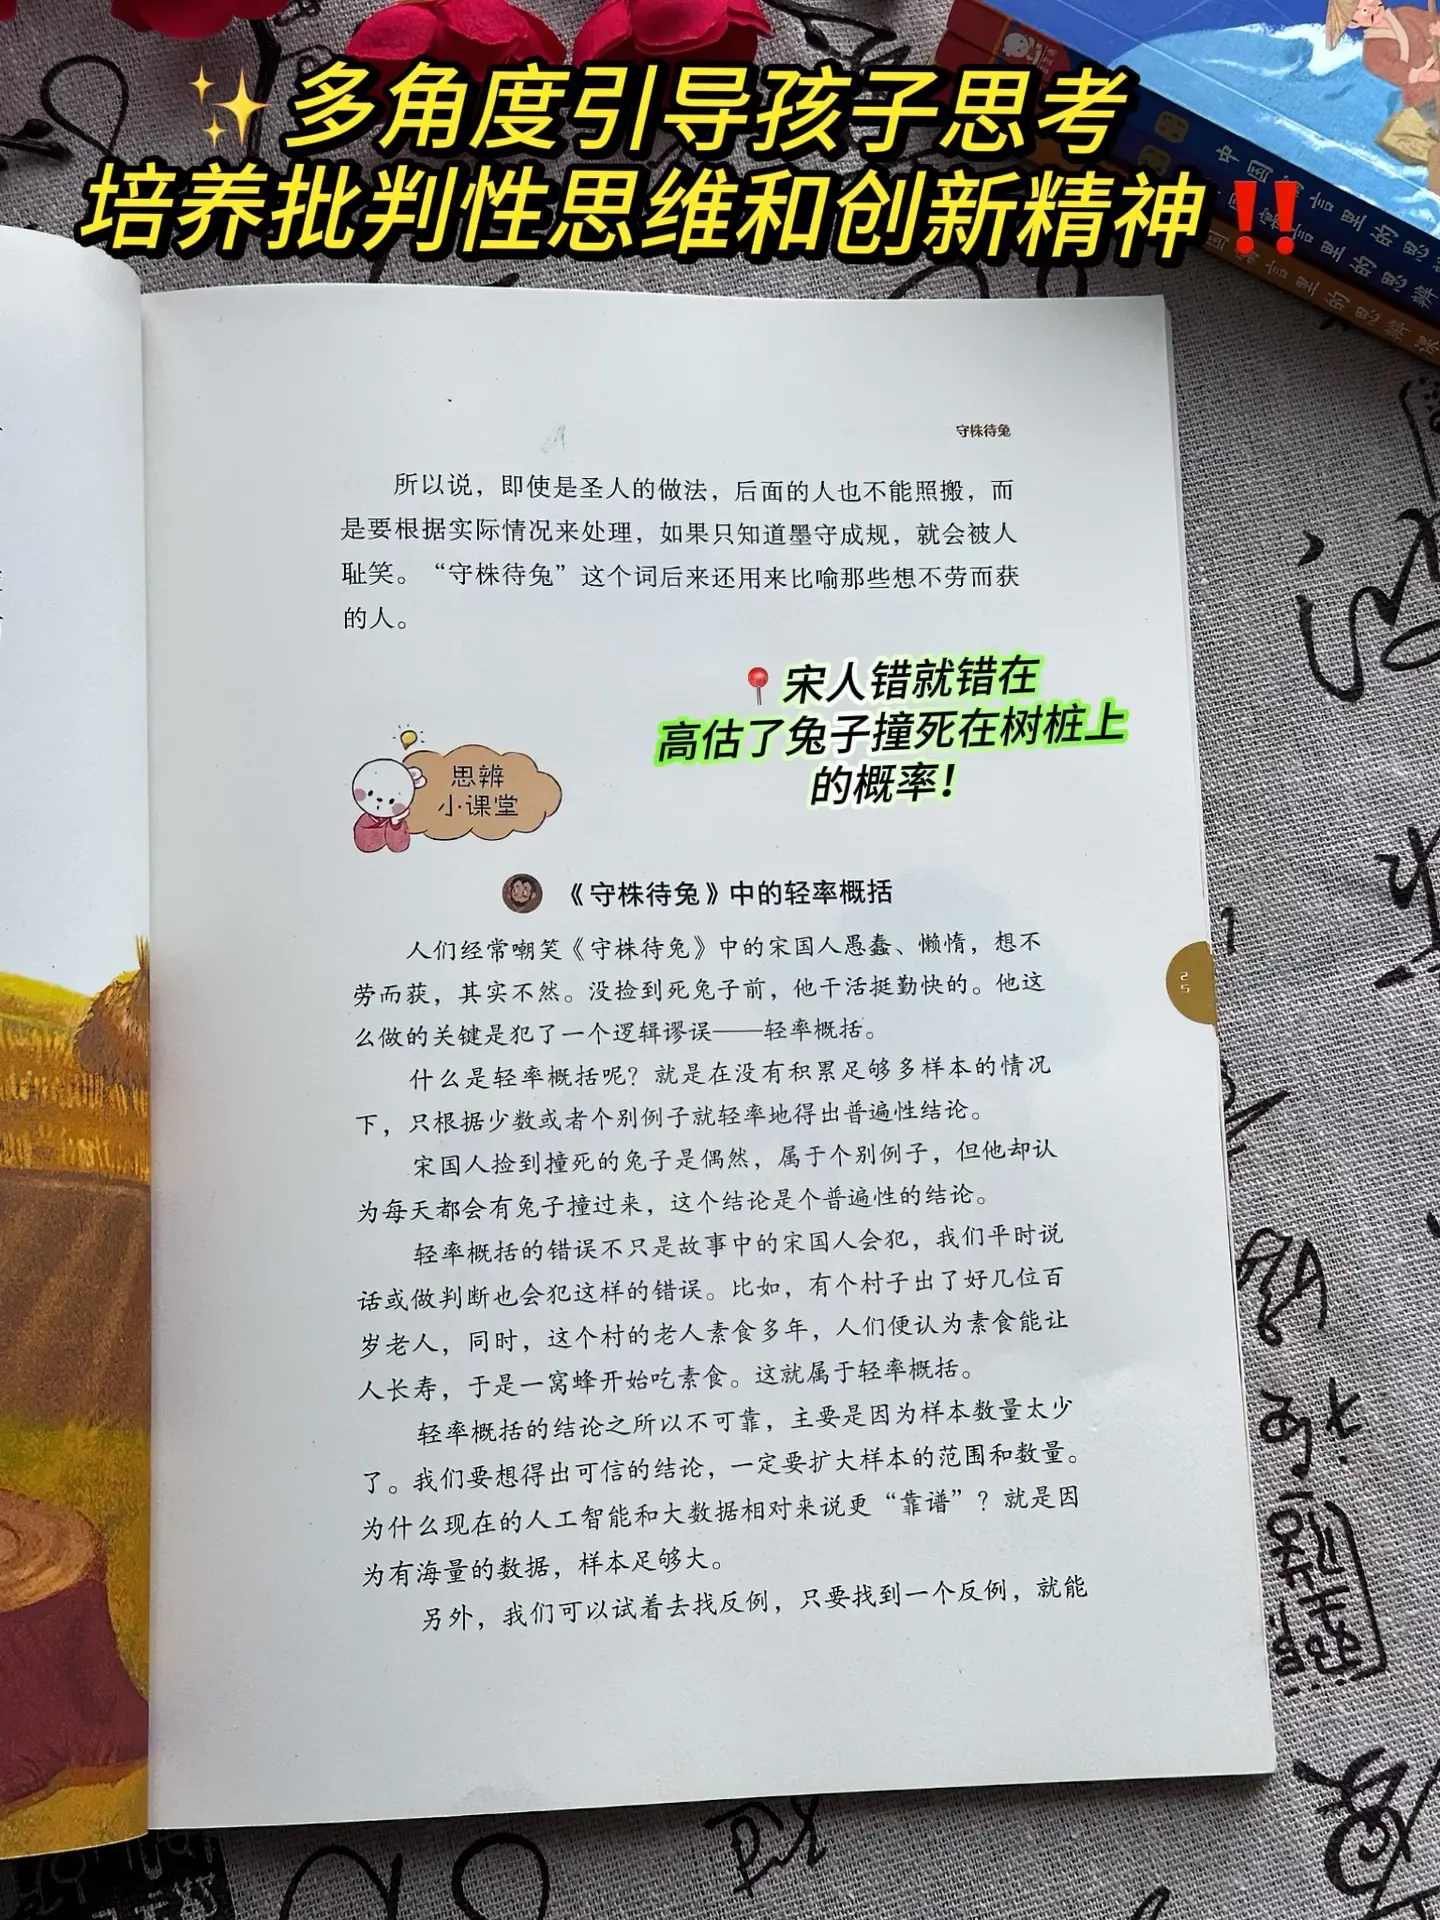 多角度引导孩子思考
培养批判性思维和创新精神‼️
守株待兔
所以说，即使是圣人的做法，后面的人也不能照搬，而
是要根据实际情况来处理，如果只知道墨守成规，就会被人
耻笑。“守株待兔”这个词后来还用来比喻那些想不劳而获
的人。
宋人错就错在
高估了兔子撞死在树桩上
的概率！
思辨
小课堂
《守株待兔》中的轻率概括
人们经常嘲笑《守株待兔》中的宋国人愚蠢、懒惰，想不
劳而获，其实不然。没捡到死兔子前，他干活挺勤快的。他这
么做的关键是犯了一个逻辑谬误——轻率概括。
什么是轻率概括呢？就是在没有积累足够多样本的情况
下，只根据少数或者个别例子就轻率地得出普遍性结论。
宋国人捡到撞死的兔子是偶然，属于个别例子，但他却认
为每天都会有兔子撞过来，这个结论是个普遍性的结论。
轻率概括的错误不只是故事中的宋国人会犯，我们平时说
话或做判断也会犯这样的错误。比如，有个村子出了好几位百
岁老人，同时，这个村的老人素食多年，人们便认为素食能让
人长寿，于是一窝蜂开始吃素食。这就属于轻率概括。
轻率概括的结论之所以不可靠，主要是因为样本数量太少
了。我们要想得出可信的结论，一定要扩大样本的范围和数量。
为什么现在的人工智能和大数据相对来说更“靠谱”？就是因
为有海量的数据，样本足够大。
另外，我们可以试着去找反例，只要找到一个反例，就能
25
中国寓言里的思辨
寓言里的思辨
国寓言里的思辨课